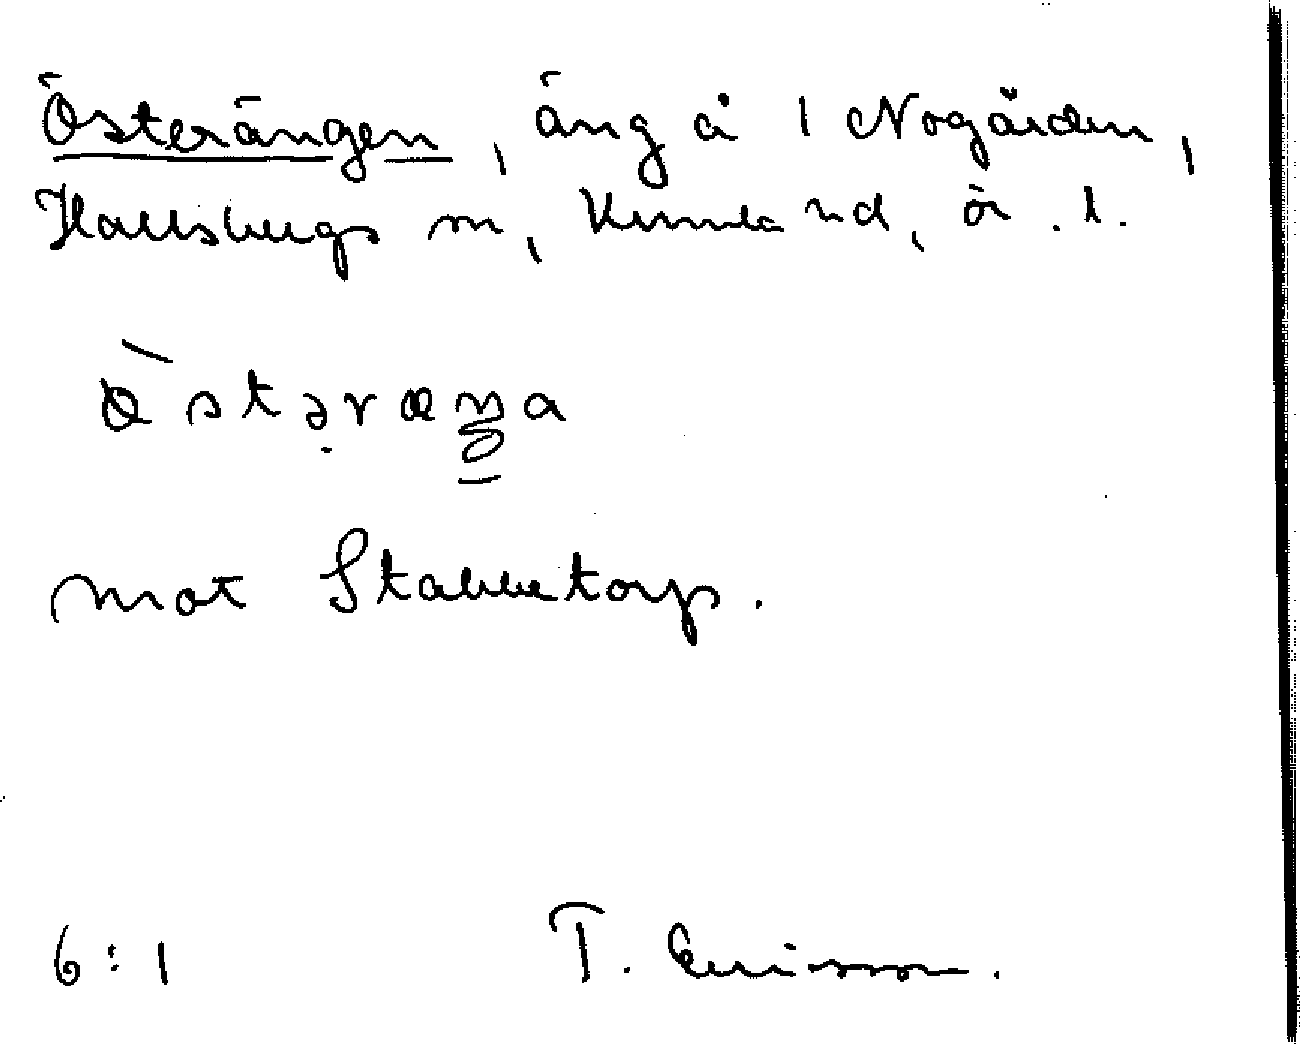 Österängen, äng å 1 Nogården,
Hallsbergs sn, Kumla hd, ör. l.
mot Stabbetorp.
6:1 T. Ericsson.